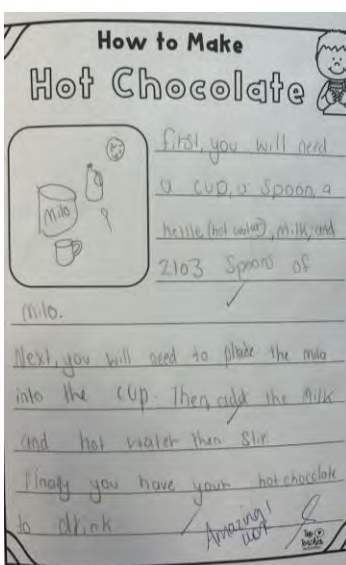 How to Make
Hot Chocolate
Milo
first, you will need
a cup, a spoon, a
kettle (hot water), milk, and
2 to 3 spoons of
milo.
Next, you will need to place the milo
into the cup. Then, add the milk
and hot water then stir.
Finally you have your hot chocolate
to drink
Amazing!
Top Teacher